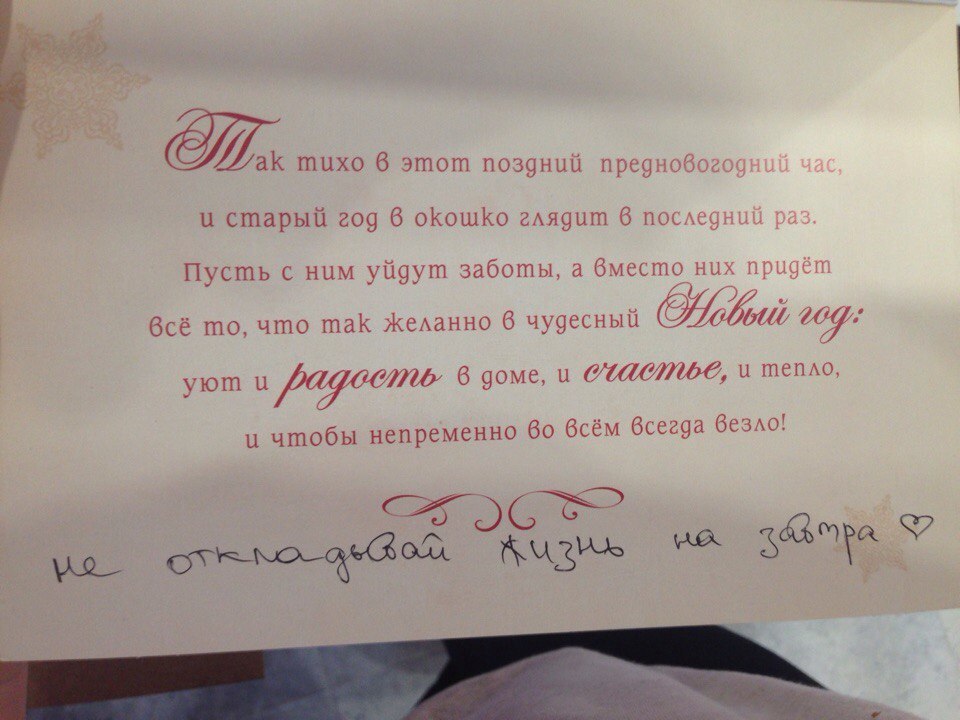 Так тихо в этот поздний предновогодний час,
и старый год в окошко глядит в последний раз.
Пусть с ним уйдут заботы, а вместо них придёт
всё то, что так желанно в чудесный Новый год:
уют и радость в доме, и счастье, и тепло,
и чтобы непременно во всём всегда везло!
не откладывай жизнь на завтра ♡